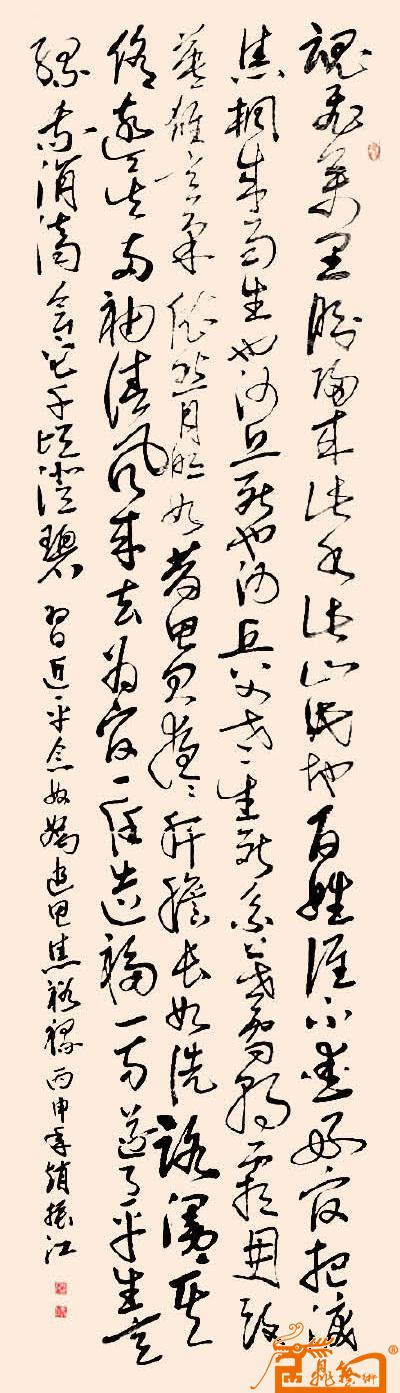 魂飛萬里盼歸來此水此山此地百姓誰不愛好官把淚
焦桐成雨生也沙丘死也沙丘父老生死系暮雪朝霜毋改
英雄意氣依然月明如昔思君夜夜肝膽長如洗路漫漫其
修遠矣兩袖清風來去為官一任造福一方遂了平生意
綠我涓滴會它千頃澄碧 習近平念奴嬌追思焦裕祿丙申年振江